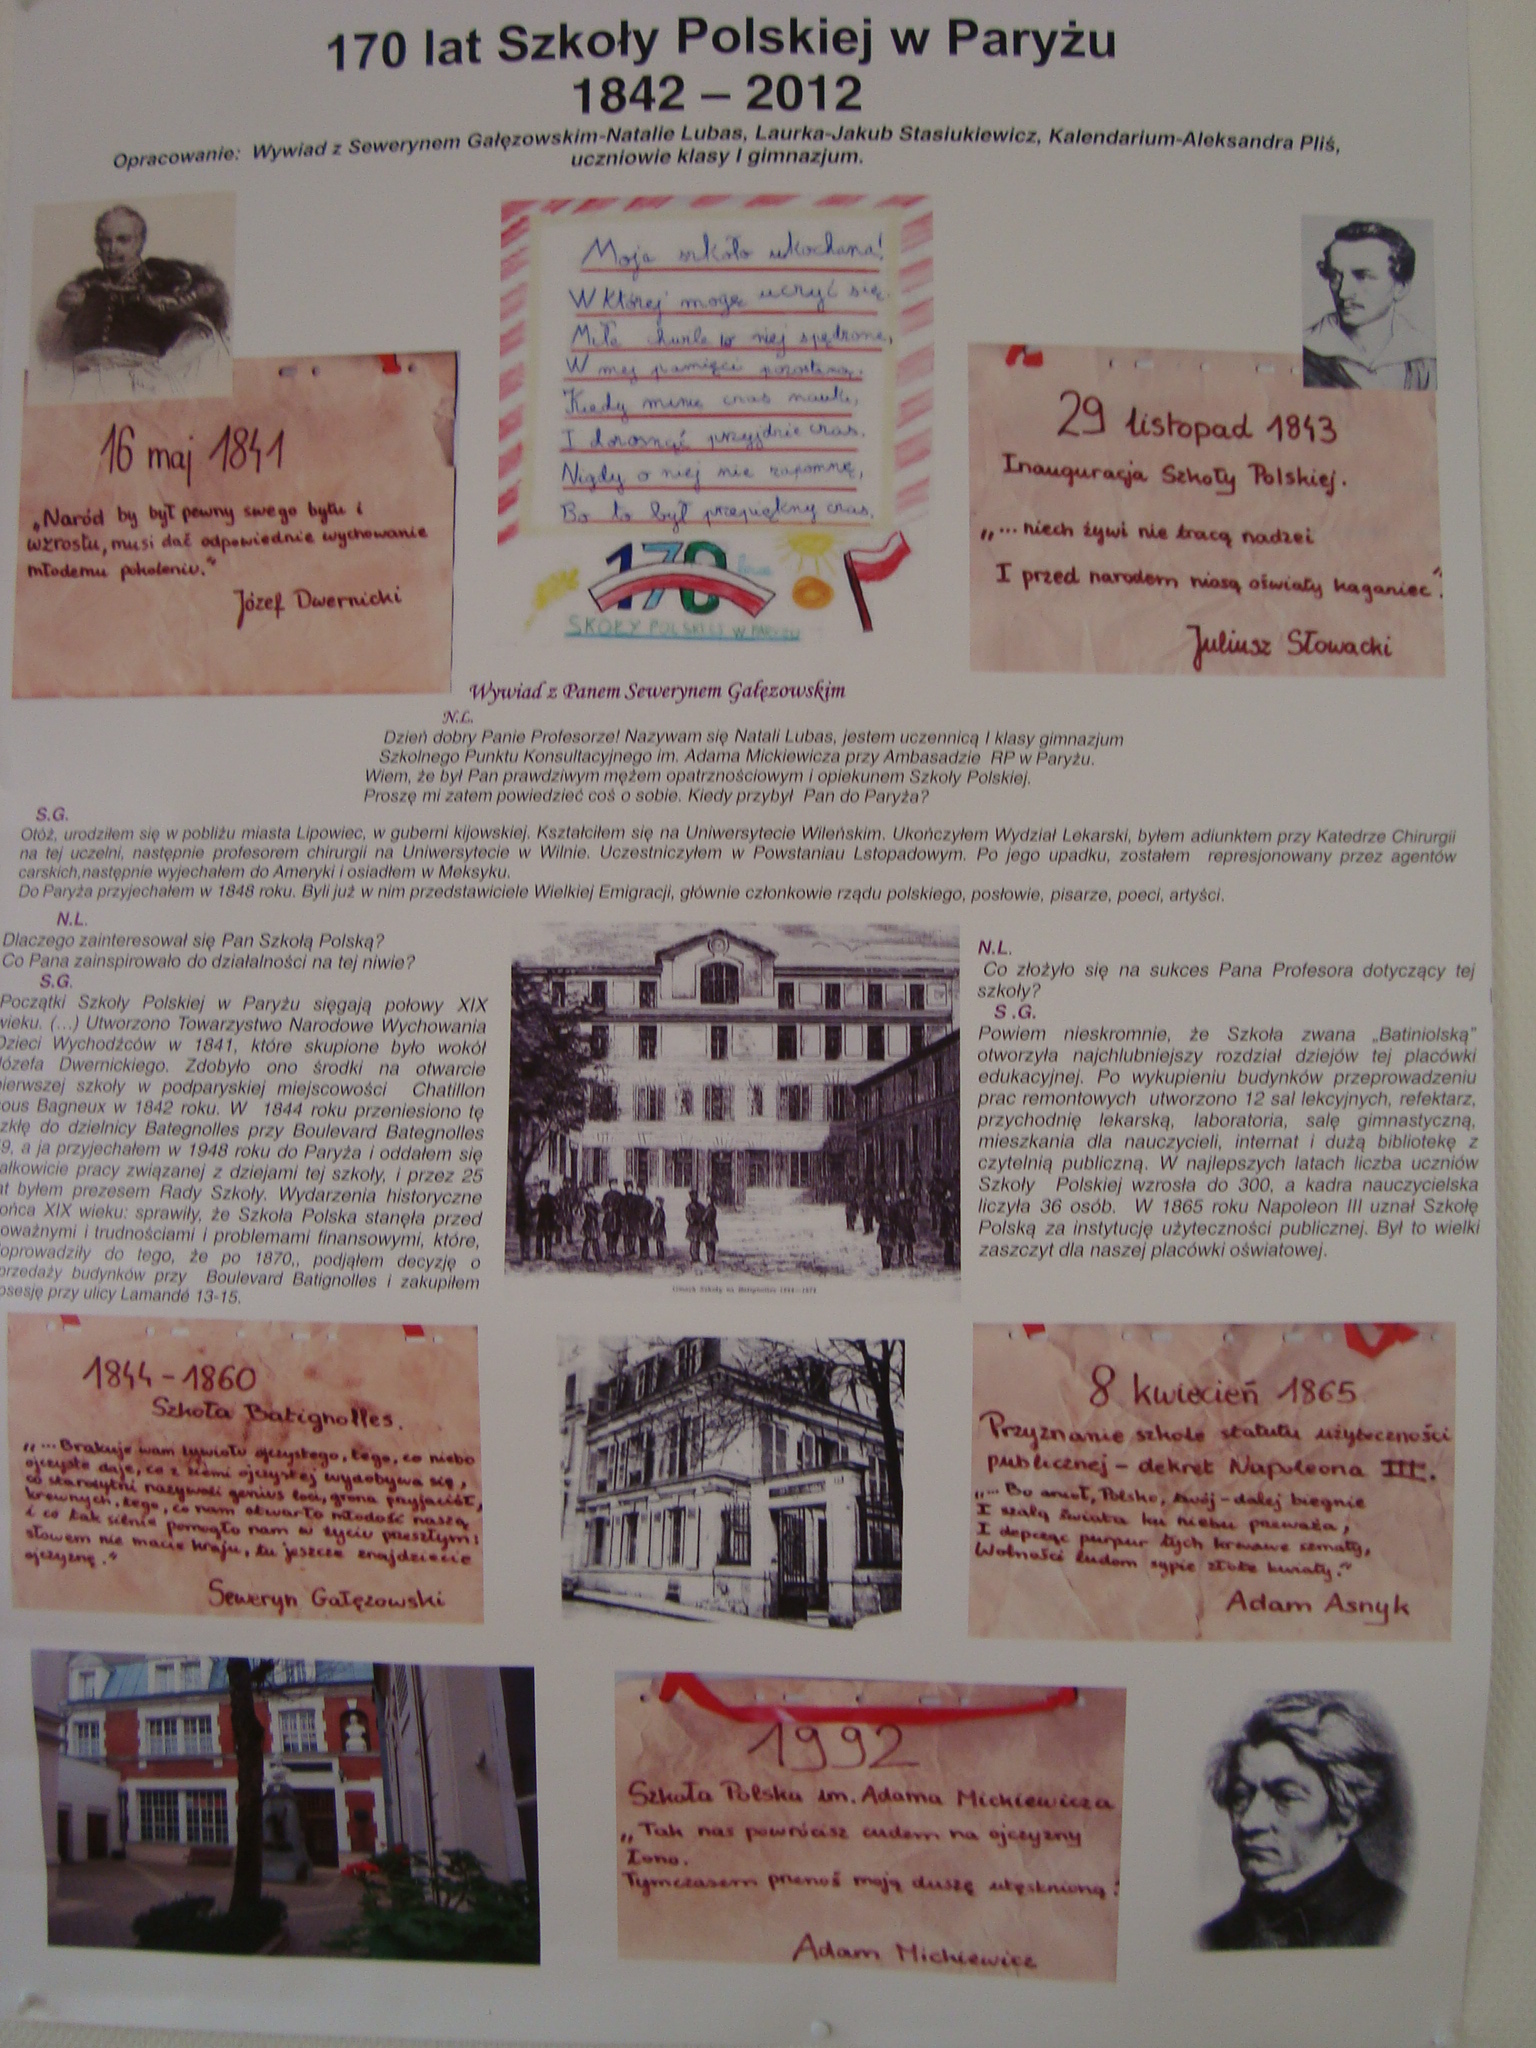 170 lat Szkoły Polskiej w Paryżu
1842 – 2012
Opracowanie: Wywiad z Sewerynem Gałęzowskim-Natalie Lubas, Laurka-Jakub Stasiukiewicz, Kalendarium-Aleksandra Pliś,
uczniowie klasy I gimnazjum.
16 maj 1841
„Naród by był pewny swego bytu i
wzrostu, musi dać odpowiednie wychowanie
młodemu pokoleniu.”
Józef Dwernicki
Moja szkoło ukochana!
W której mogę uczyć się.
Miłe chwile w niej spędzone,
W mej pamięci pozostaną.
Kiedy minie czas nauki,
I dorosnąć przyjdzie czas.
Nigdy o niej nie zapomnę,
Bo to był przepiękny czas.
170 lecie
SKOŁY POLSKIEJ W PARYŻU
29 listopad 1843
Inauguracja Szkoły Polskiej.
„... niech żywi nie tracą nadzei
I przed narodem niosą oświaty kaganiec”.
Juliusz Słowacki
Wywiad z Panem Sewerynem Gałęzowskim
N.L.
Dzień dobry Panie Profesorze! Nazywam się Natali Lubas, jestem uczennicą I klasy gimnazjum
Szkolnego Punktu Konsultacyjnego im. Adama Mickiewicza przy Ambasadzie RP w Paryżu.
Wiem, że był Pan prawdziwym mężem opatrznościowym i opiekunem Szkoły Polskiej.
Proszę mi zatem powiedzieć coś o sobie. Kiedy przybył Pan do Paryża?
S.G.
Otóż, urodziłem się w pobliżu miasta Lipowiec, w guberni kijowskiej. Kształciłem się na Uniwersytecie Wileńskim. Ukończyłem Wydział Lekarski, byłem adiunktem przy Katedrze Chirurgii
na tej uczelni, następnie profesorem chirurgii na Uniwersytecie w Wilnie. Uczestniczyłem w Powstaniu Lstopadowym. Po jego upadku, zostałem represjonowany przez agentów
carskich,następnie wyjechałem do Ameryki i osiadłem w Meksyku.
Do Paryża przyjechałem w 1848 roku. Byli już w nim przedstawiciele Wielkiej Emigracji, głównie członkowie rządu polskiego, posłowie, pisarze, poeci, artyści.
N.L.
Dlaczego zainteresował się Pan Szkołą Polską?
Co Pana zainspirowało do działalności na tej niwie?
S.G.
Początki Szkoły Polskiej w Paryżu sięgają połowy XIX
wieku. (...) Utworzono Towarzystwo Narodowe Wychowania
Dzieci Wychodźców w 1841, które skupione było wokół
Józefa Dwernickiego. Zdobyło ono środki na otwarcie
pierwszej szkoły w podparyskiej miejscowości Chatillon
sous Bagneux w 1842 roku. W 1844 roku przeniesiono tę
zkłę do dzielnicy Bategnolles przy Boulevard Bategnolles
9, a ja przyjechałem w 1948 roku do Paryża i oddałem się
ałkowicie pracy związanej z dziejami tej szkoły, i przez 25
at byłem prezesem Rady Szkoły. Wydarzenia historyczne
ońca XIX wieku: sprawiły, że Szkoła Polska stanęła przed
oważnymi i trudnościami i problemami finansowymi, które,
oprowadziły do tego, że po 1870,, podjąłem decyzję o
przedaży budynków przy Boulevard Batignolles i zakupiłem
osesję przy ulicy Lamandé 13-15.
N.L.
Co złożyło się na sukces Pana Profesora dotyczący tej
szkoły?
S .G.
Powiem nieskromnie, że Szkoła zwana „Batiniolską”
otworzyła najchlubniejszy rozdział dziejów tej placówki
edukacyjnej. Po wykupieniu budynków przeprowadzeniu
prac remontowych utworzono 12 sal lekcyjnych, refektarz,
przychodnię lekarską, laboratoria, salę gimnastyczną,
mieszkania dla nauczycieli, internat i dużą bibliotekę z
czytelnią publiczną. W najlepszych latach liczba uczniów
Szkoły Polskiej wzrosła do 300, a kadra nauczycielska
liczyła 36 osób. W 1865 roku Napoleon III uznał Szkołę
Polską za instytucję użyteczności publicznej. Był to wielki
zaszczyt dla naszej placówki oświatowej.
1844 - 1860
Szkoła Batignolles.
„... Brakuje wam żywiołu ojczystego, tego, co niebo
ojczyste daje, co z ziemi ojczystej wydobywa się,
co starożytni nazywali genius loci, grona przyjaciół,
krewnych, tego, co nam otwarło młodość naszą
i co tak silnie pomogło nam w życiu przeszłym;
słowem nie macie kraju, tu jeszcze znajdziecie
ojczyznę.”
Seweryn Gałęzowski
8 kwiecień 1865
Przyznanie szkole statutu użyteczności
publicznej - dekret Napoleona III.
„... Bo anioł, Polsko, twój - dalej biegnie
I szalą świata ku niebu przeważa,
I depcząc purpur tych krwawe szmaty,
Wolności ludom sypie złote kwiaty.”
Adam Asnyk
1992
Szkoła Polska im. Adama Mickiewicza
„Tak nas powrócisz cudem na ojczyzny
łono.
Tymczasem przenoś moją duszę utęsknioną.”
Adam Mickiewicz